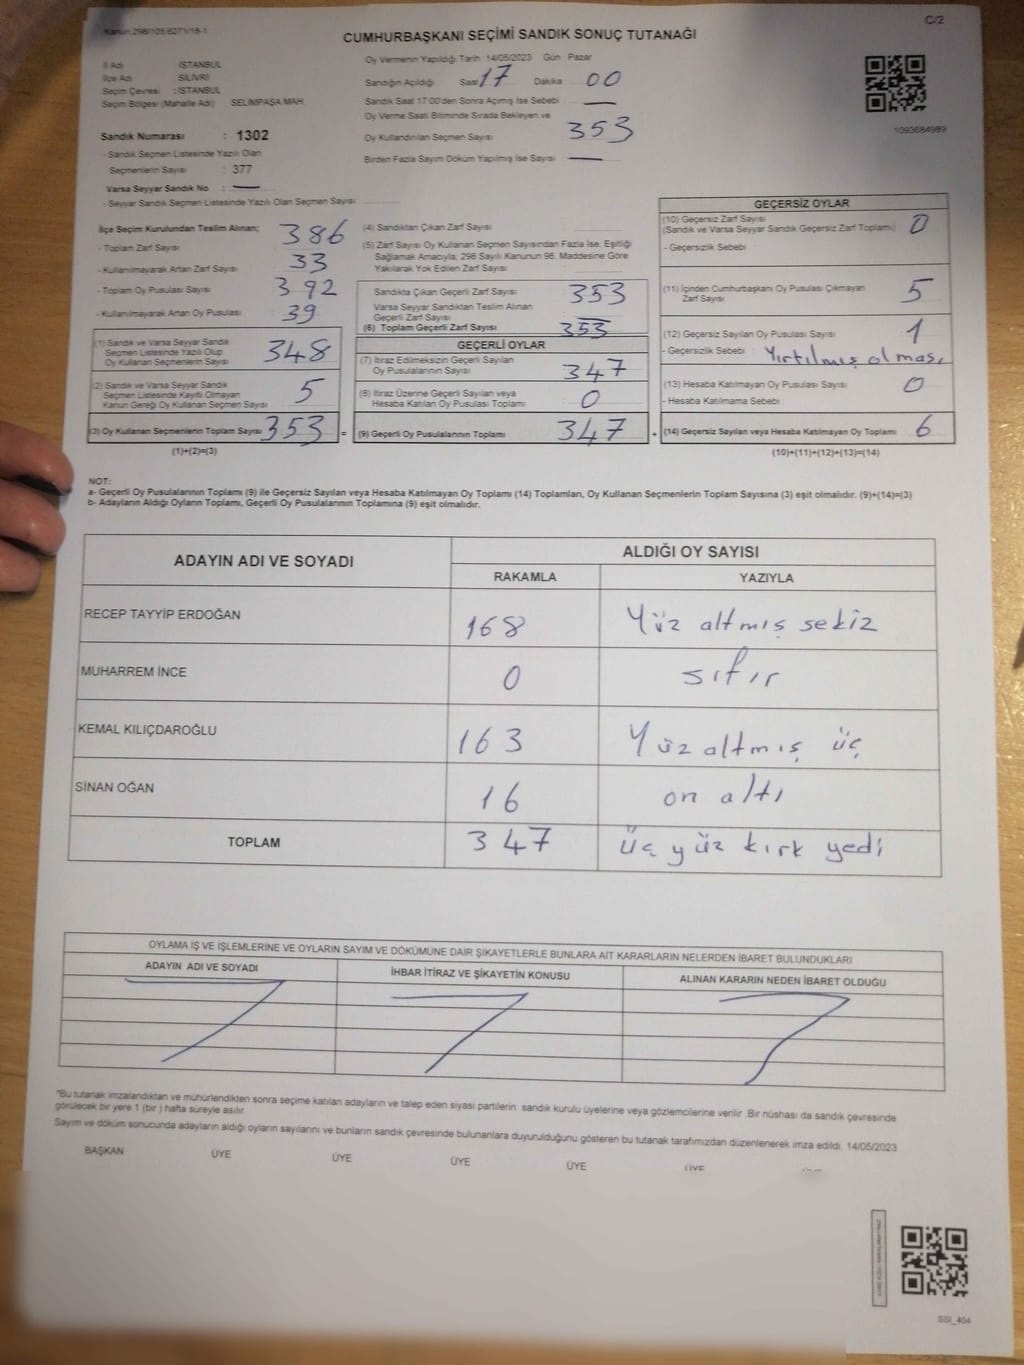 Kanun 298/105,6271/18-1
C/2
CUMHURBAŞKANI SEÇİMİ SANDIK SONUÇ TUTANAĞI
İl Adı : İSTANBUL
İlçe Adı : SİLİVRİ
Seçim Çevresi : İSTANBUL
Seçim Bölgesi (Mahalle Adı) SELİMPAŞA MAH.
Sandık Numarası : 1302
- Sandık Seçmen Listesinde Yazılı Olan
Seçmenlerin Sayısı : 377
Varsa Seyyar Sandık No : —
- Seyyar Sandık Seçmen Listesinde Yazılı Olan Seçmen Sayısı
Oy Vermenin Yapıldığı Tarih 14/05/2023 Gün Pazar
Sandığın Açıldığı Saat 17 Dakika 00
Sandık Saat 17:00'den Sonra Açımış İse Sebebi —
Oy Verme Saati Bitiminde Sırada Bekleyen ve
Oy Kullandırılan Seçmen Sayısı 353
Birden Fazla Sayım Döküm Yapılmış İse Sayısı —
1093684989
İlçe Seçim Kurulundan Teslim Alınan;
- Toplam Zarf Sayısı 386
- Kullanılmayarak Artan Zarf Sayısı 33
- Toplam Oy Pusulası Sayısı 392
- Kullanılmayarak Artan Oy Pusulası 39
(1) Sandık ve Varsa Seyyar Sandık
Seçmen Listesinde Yazılı Olup
Oy Kullanan Seçmenlerin Sayısı 348
(2) Sandık ve Varsa Seyyar Sandık
Seçmen Listesinde Kaydı Olmayan
Kanun Gereği Oy Kullanan Seçmen Sayısı 5
(3) Oy Kullanan Seçmenlerin Toplam Sayısı 353 =
(1)+(2)=(3)
(4) Sandıktan Çıkan Zarf Sayısı
(5) Zarf Sayısı Oy Kullanan Seçmen Sayısından Fazla İse, Eşitliği
Sağlamak Amacıyla; 298 Sayılı Kanunun 98. Maddesine Göre
Yakılarak Yok Edilen Zarf Sayısı
Sandıkta Çıkan Geçerli Zarf Sayısı 353
Varsa Seyyar Sandıktan Teslim Alınan
Geçerli Zarf Sayısı —
(6) Toplam Geçerli Zarf Sayısı 353
GEÇERLİ OYLAR
(7) İtiraz Edilmeksizin Geçerli Sayılan
Oy Pusulalarının Sayısı 347
(8) İtiraz Üzerine Geçerli Sayılan veya
Hesaba Katılan Oy Pusulası Toplamı 0
(9) Geçerli Oy Pusulalarının Toplamı 347 +
GEÇERSİZ OYLAR
(10) Geçersiz Zarf Sayısı
(Sandık ve Varsa Seyyar Sandık Geçersiz Zarf Toplamı) 0
- Geçersizlik Sebebi
(11) İçinden Cumhurbaşkanı Oy Pusulası Çıkmayan
Zarf Sayısı 5
(12) Geçersiz Sayılan Oy Pusulası Sayısı 1
- Geçersizlik Sebebi Yırtılmış olması
(13) Hesaba Katılmayan Oy Pusulası Sayısı 0
- Hesaba Katılmama Sebebi
(14) Geçersiz Sayılan veya Hesaba Katılmayan Oy Toplamı 6
(10)+(11)+(12)+(13)=(14)
NOT:
a- Geçerli Oy Pusulalarının Toplamı (9) ile Geçersiz Sayılan veya Hesaba Katılmayan Oy Toplamı (14) Toplamları, Oy Kullanan Seçmenlerin Toplam Sayısına (3) eşit olmalıdır. (9)+(14)=(3)
b- Adayların Aldığı Oyların Toplamı, Geçerli Oy Pusulalarının Toplamına (9) eşit olmalıdır.
ADAYIN ADI VE SOYADI
ALDIĞI OY SAYISI
RAKAMLA YAZIYLA
RECEP TAYYİP ERDOĞAN 168 Yüz altmış sekiz
MUHARREM İNCE 0 sıfır
KEMAL KILIÇDAROĞLU 163 Yüz altmış üç
SİNAN OĞAN 16 on altı
TOPLAM 347 üç yüz kırk yedi
OYLAMA İŞ VE İŞLEMLERİNE VE OYLARIN SAYIM VE DÖKÜMÜNE DAİR ŞİKAYETLERLE BUNLARA AİT KARARLARIN NELERDEN İBARET BULUNDUKLARI
ADAYIN ADI VE SOYADI İHBAR İTİRAZ VE ŞİKAYETİN KONUSU ALINAN KARARIN NEDEN İBARET OLDUĞU
*Bu tutanak imzalandıktan ve mühürlendikten sonra seçime katılan adayların ve talep eden siyasi partilerin sandık kurulu üyelerine veya gözlemcilerine verilir. Bir nüshası da sandık çevresinde
görülecek bir yere 1 (bir) hafta süreyle asılır.
Sayım ve döküm sonucunda adayların aldığı oyların sayılarını ve bunların sandık çevresinde bulunanlara duyurulduğunu gösteren bu tutanak tarafımızdan düzenlenerek imza edildi. 14/05/2023
BAŞKAN ÜYE ÜYE ÜYE ÜYE ÜYE
SSI_404